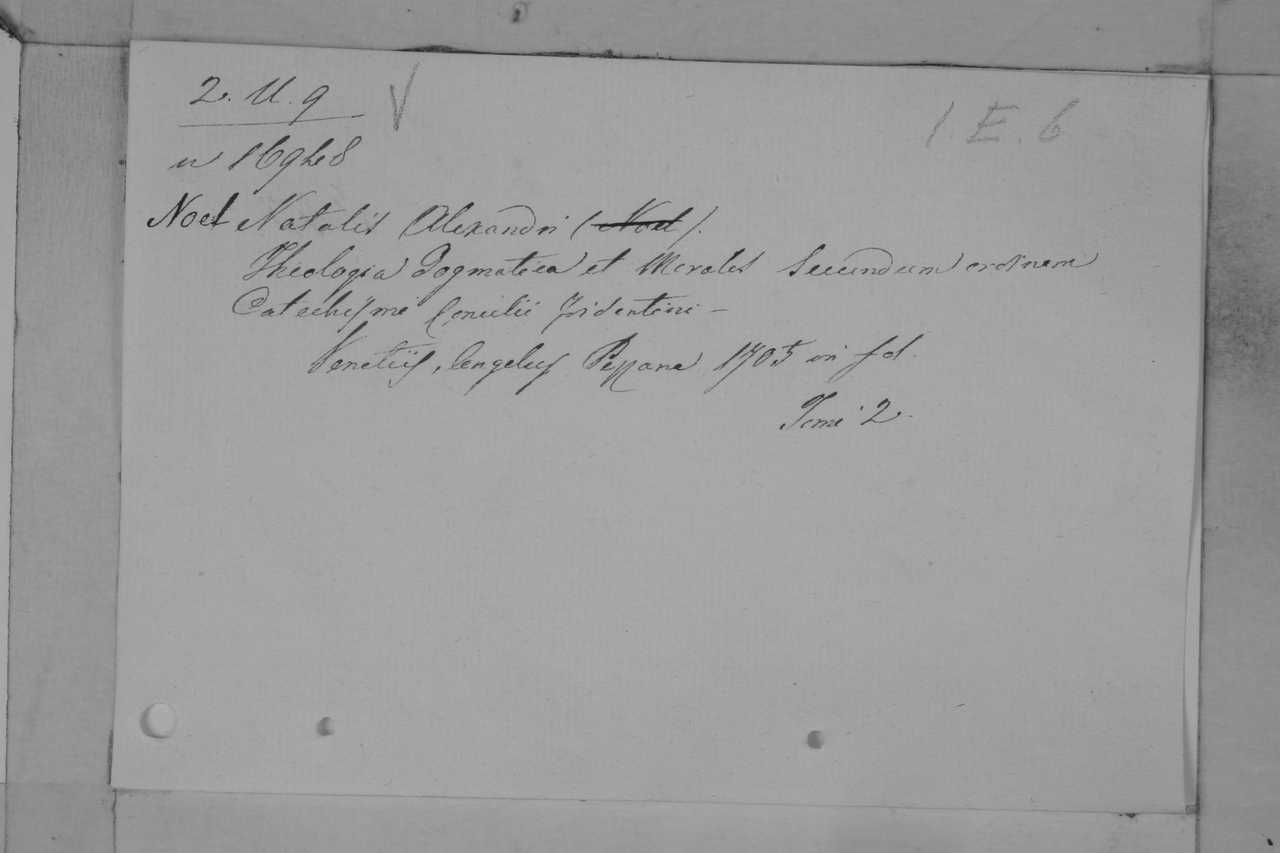 2. U. 9 V
1 E. 6
n 16948
Noel Natalis Alexandri (Noel).
Theologia Dogmatica et Moralis Secundum ordinem
Catechismi Concilii Tridentini –
Venetiis, Angelus Pezzana 1705 in fol.
Tomi 2.